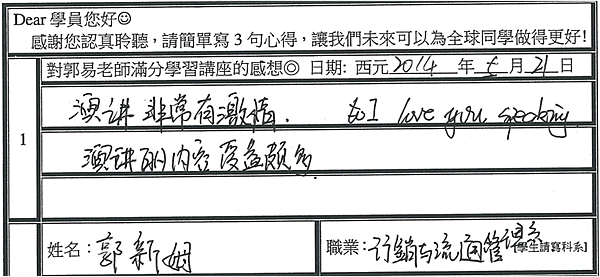 Dear 學員您好☺
感謝您認真聆聽，請簡單寫 3 句心得，讓我們未來可以為全球同學做得更好!
對郭易老師滿分學習講座的感想☺ 日期: 西元 2014 年 七 月 21 日
1
演讲 非常有激情. I love your speaking
演讲的内容受益颇多
姓名：郭新姻
職業：行銷与流通管理系
[學生請寫科系]